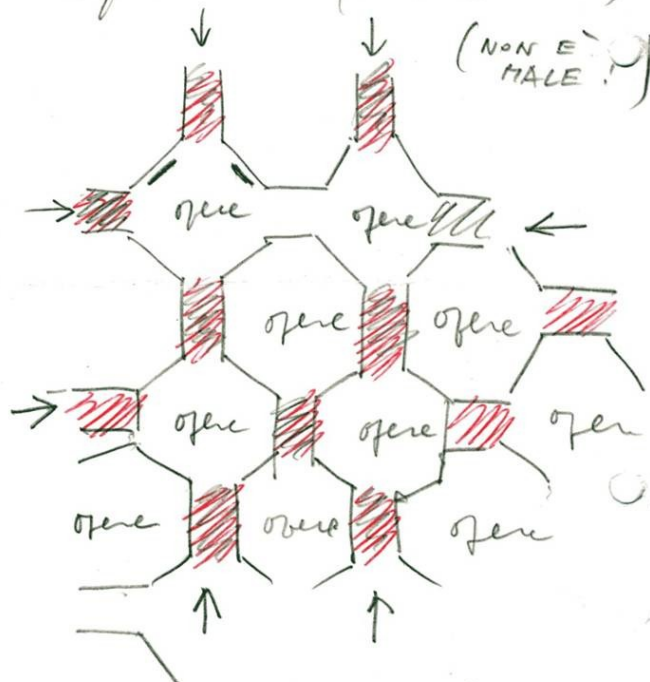 (NON E`
MALE!)
opere opere
opere opere
opere opere oper
opere opere opere